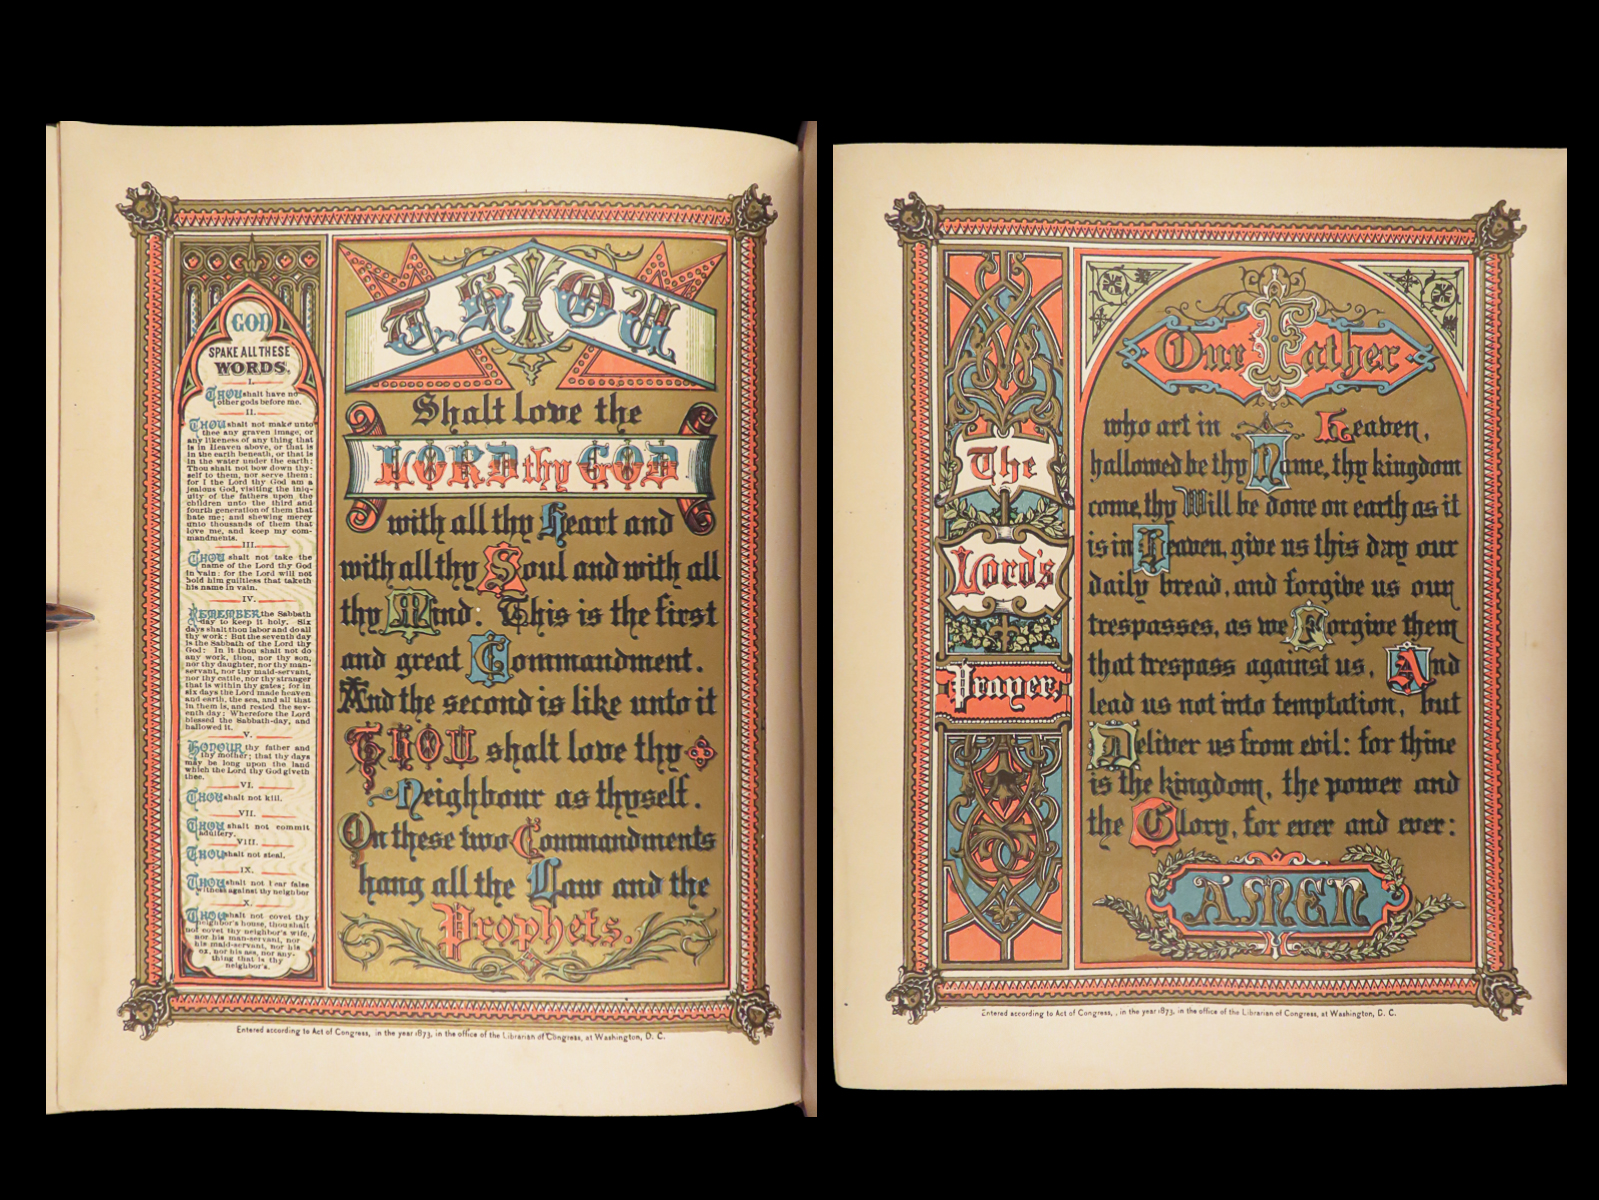 GOD
SPAKE ALL THESE
WORDS.
I.
THOU shalt have no
other gods before me.
II.
THOU shalt not make unto
thee any graven image, or
any likeness of any thing that
is in Heaven above, or that is
in the earth beneath, or that is
in the water under the earth;
Thou shalt not bow down thy-
self to them, nor serve them:
for I the Lord thy God am a
jealous God, visiting the iniq-
uity of the fathers upon the
children unto the third and
fourth generation of them that
hate me; and shewing mercy
unto thousands of them that
love me, and keep my com-
mandments.
III.
THOU shalt not take the
name of the Lord thy God
in vain: for the Lord will not
hold him guiltless that taketh
his name in vain.
IV.
REMEMBER the Sabbath
day to keep it holy. Six
days shalt thou labor and do all
thy work: But the seventh day
is the Sabbath of the Lord thy
God: In it thou shalt not do
any work, thou, nor thy son,
nor thy daughter, nor thy man-
servant, nor thy maid-servant,
nor thy cattle, nor thy stranger
that is within thy gates; for in
six days the Lord made heaven
and earth, the sea, and all that
in them is, and rested the sev-
enth day; Wherefore the Lord
blessed the Sabbath-day, and
hallowed it.
V.
HONOUR thy father and
thy mother; that thy days
may be long upon the land
which the Lord thy God giveth
thee.
VI.
THOU shalt not kill.
VII.
THOU shalt not commit
adultery.
VIII.
THOU shalt not steal.
IX.
THOU shalt not bear false
witness against thy neighbor
X.
THOU shalt not covet thy
neighbor's house, thou shalt
not covet thy neighbor's wife,
nor his man-servant, nor
his maid-servant, nor his
ox, nor his ass, nor any-
thing that is thy
neighbor's.
THOU
Shalt love the
LORD thy GOD
with all thy Heart and
with all thy Soul and with all
thy Mind. This is the first
and great Commandment.
And the second is like unto it
THOU shalt love thy
Neighbour as thyself.
On these two Commandments
hang all the Law and the
Prophets.
Entered according to Act of Congress, in the year 1873, in the office of the Librarian of Congress, at Washington, D. C.
The
Lord's
Prayer,
Our Father
who art in Heaven,
hallowed be thy Name, thy kingdom
come, thy Will be done on earth as it
is in Heaven, give us this day our
daily bread, and forgive us our
trespasses, as we Forgive them
that trespass against us, And
lead us not into temptation, but
Deliver us from evil: for thine
is the kingdom, the power and
the Glory, for ever and ever:
AMEN
Entered according to Act of Congress, , in the year 1873, in the office of the Librarian of Congress, at Washington, D. C.